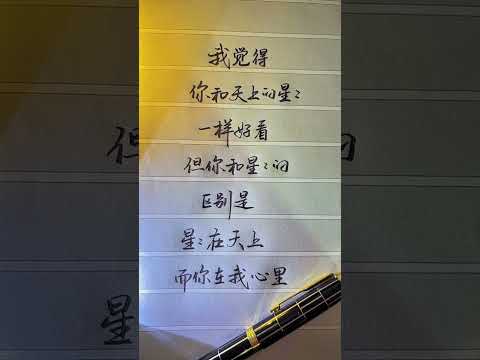 我觉得
你和天上的星々
一样好看
但你和星々的
区别是
星々在天上
而你在我心里